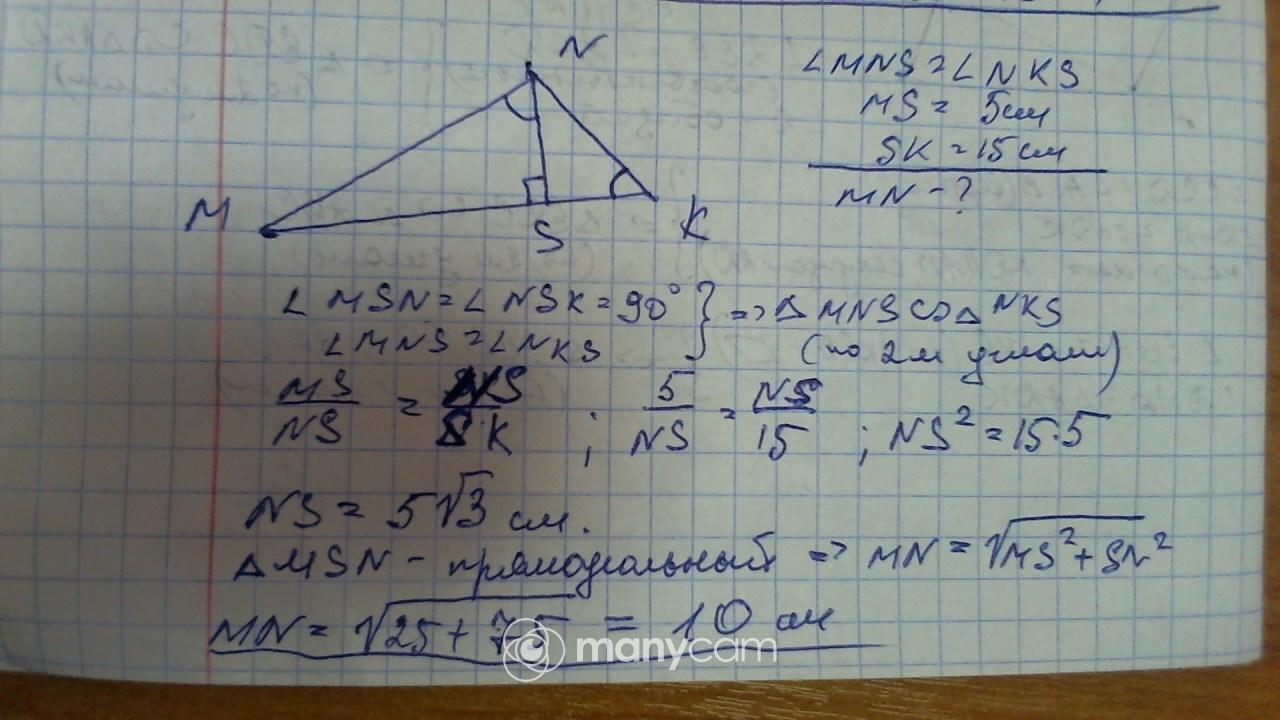 N
M
S
K
∠MNS = ∠NKS
MS = 5см
SK = 15 см
MN - ?
∠MSN = ∠NSK = 90° } => ΔMNS ∞ ΔNKS
∠MNS = ∠NKS (по 2м углам)
MS/NS = NS/SK ; 5/NS = NS/15 ; NS² = 15·5
NS = 5√3 см.
ΔMSN - прямоугольный => MN = √MS² + SN²
MN = √25 + 75 = 10 см
manycam